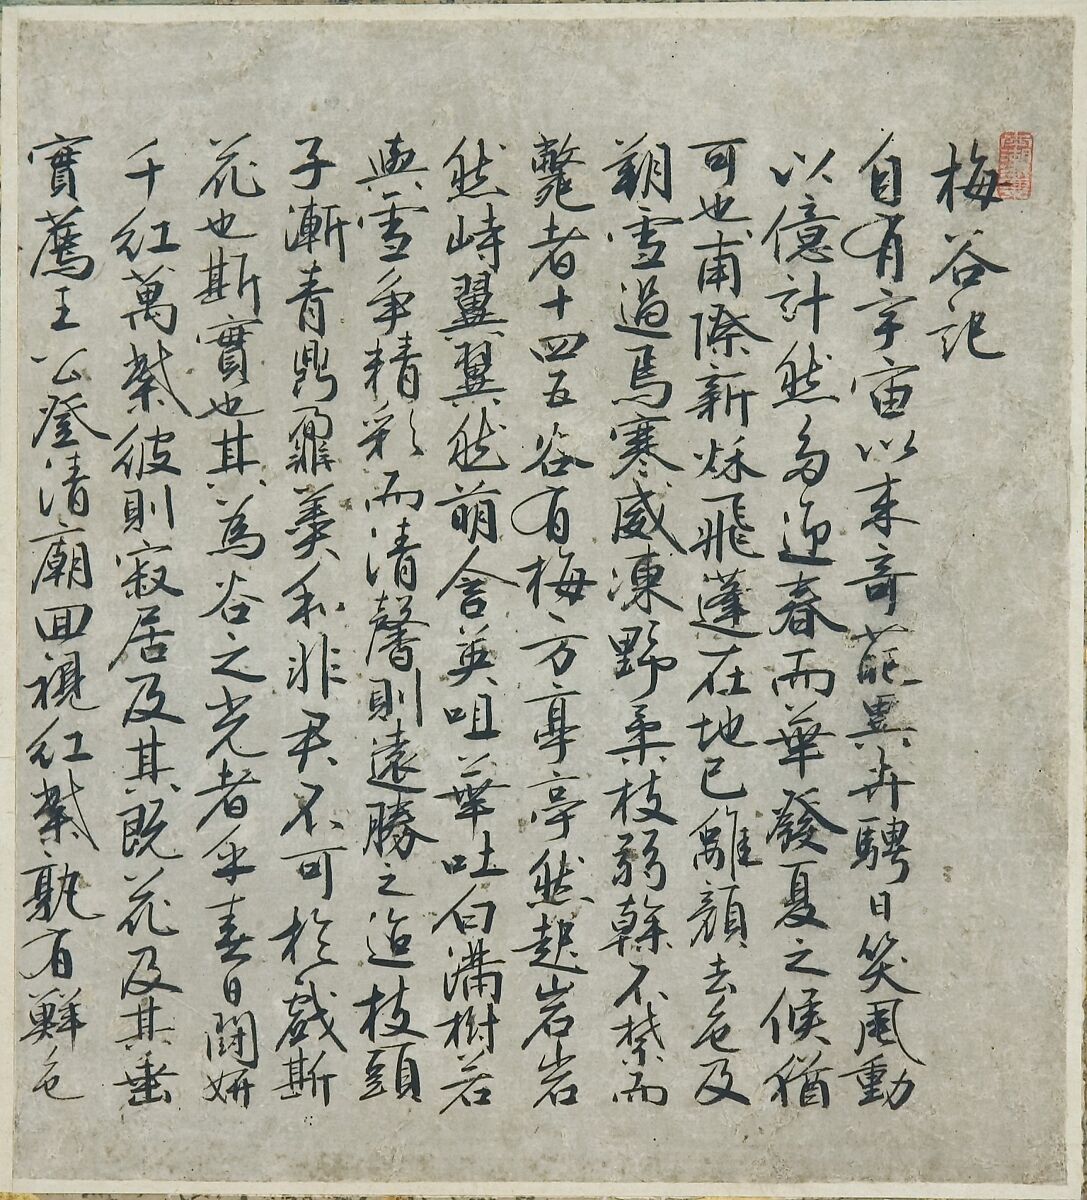 梅谷記
自有宇宙以来奇葩異卉騁日笑風動
以億計然多迎春而華發夏之候猶
可也甫際新秋飛蓬在地已離顏去色及
朔雪過焉寒威凍野柔枝弱榦不禁而
斃者十四五谷有梅方亭亭然起岩岩
然峙翼翼然萌含英咀華吐白滿樹若
與雪爭精彩而清馨則遠勝之迨枝頭
子漸青鼎鼐羹和非君不可於戲斯
花也斯實也其為谷之光者乎春日鬪妍
千紅萬紫彼則寂居及其既花及其垂
實薦王公登清廟回視紅紫孰有鮮色